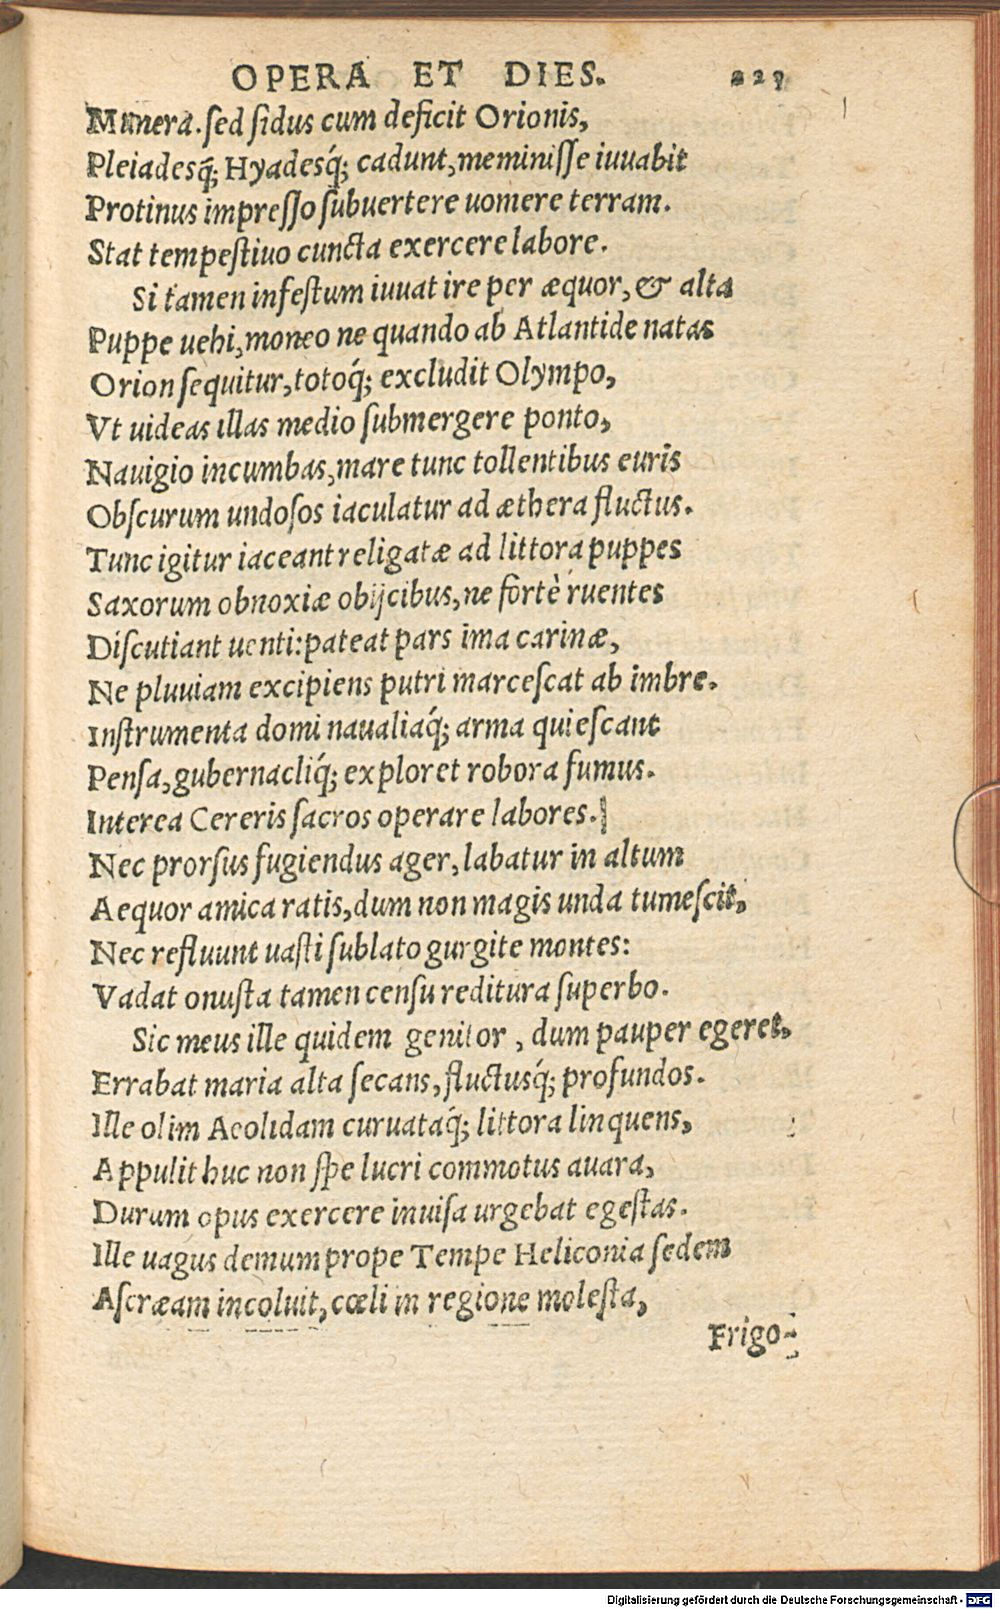 OPERA ET DIES. 223
Munera. ſed ſidus cum deficit Orionis,
Pleiadesq́; Hyadesq́; cadunt, meminiſſe iuuabit
Protinus impreſſo ſubuertere uomere terram.
Stat tempeſtiuo cuncta exercere labore.
Si tamen infeſtum iuuat ire per æquor, & alta
Puppe uehi, moneo ne quando ab Atlantide natas
Orion ſequitur, totoq́; excludit Olympo,
Vt uideas illas medio ſubmergere ponto,
Nauigio incumbas, mare tunc tollentibus euris
Obſcurum undoſos iaculatur ad æthera fluctus.
Tunc igitur iaceant religatæ ad littora puppes
Saxorum obnoxiæ obijcibus, ne fortè ruentes
Diſcutiant uenti: pateat pars ima carinæ,
Ne pluuiam excipiens putri marceſcat ab imbre.
Inſtrumenta domi naualiaq́; arma quieſcant
Penſa, gubernacliq́; exploret robora fumus.
Interea Cereris ſacros operare labores.
Nec prorſus fugiendus ager, labatur in altum
Aequor amica ratis, dum non magis unda tumeſcit,
Nec refluunt uaſti ſublato gurgite montes:
Vadat onuſta tamen cenſu reditura ſuperbo.
Sic meus ille quidem genitor, dum pauper egeret,
Errabat maria alta ſecans, fluctusq́; profundos.
Ille olim Aeolidam curuataq́; littora linquens,
Appulit huc non ſpe lucri commotus auara,
Durum opus exercere inuiſa urgebat egeſtas.
Ille uagus demum prope Tempe Heliconia ſedem
Aſcræam incoluit, cœli in regione moleſta,
Frigo-
Digitalisierung gefördert durch die Deutsche Forschungsgemeinschaft - DFG